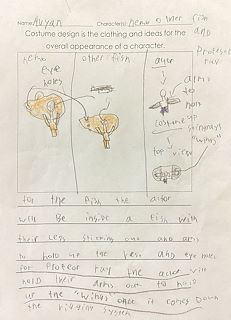 Name: Avyan Character(s) nemo other fish and
Costume design is the clothing and ideas for the
overall appearance of a character.
Protester ray
nemo
eye
holes
other fish
actor
arms
to
hold
costume up
stingrays
"wings"
top view
for the fish the actor
will Be inside a fish with
their legs sticking out and arms
to hold up the rest and eye holes
for Protester ray the actor will
hold their arms out to hold
up the "wings" once it comes Down
the rigging system